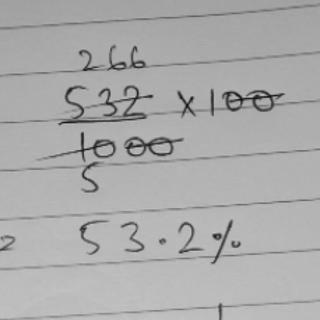 266
532 × 100
1000
5
= 53.2%